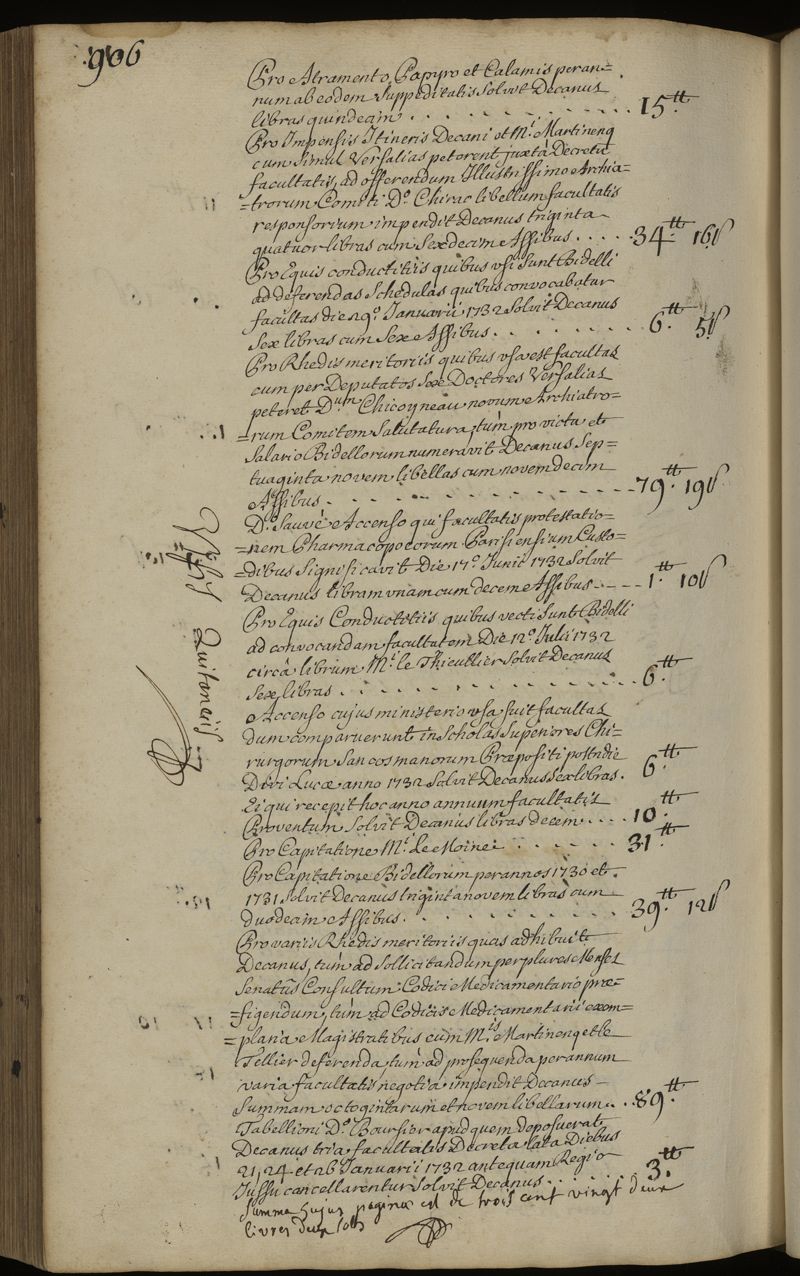 906
Pro Atramento, Papyro et Calamis per an=
num ab eodem Suppeditatis Solvit Decanus
libras quindecim . . . . . . . . . . . . 15.tt
Pro Impensis Itineris Decani et M.i Martinenq
cum Simul Versalias peterent juxtà Decretũ
facultatis, ad offerendum Illustrissimo Archia-
=trorum Comiti D.o Chirac libellum facultatis
responsorium impendit Decanus triginta
quatuor libras cum Sexdecim Assibus . . . . 34.tt 16ſ
Pro Equis conductitiis quibus vsi Sunt Bidelli
ad deferendas Schedulas quibus convocabatur
facultas die 29.o Januarii 1732 Solvit Decanus
Sex libras cum Sex Assibus . . . . . . . . 6.tt 5ſ
Pro Rhedis meritoriis quibus vsa est facultas
cum per Deputatos Sex Doctores Versalias
peteret D.um Chicoyneau novum Archiatro=
=rum Comitem Salutatura, tùm pro victu et
Salario Bidellorum numeravit Decanus Sep=
tuaginta novem libellas cum novemdecim
Assibus . . . . . . . . . . . . . 79.tt 19ſ
D.o Sauvé Accenso qui facultatis protestatio=
=nem Pharmacopoeorum Parisiensium Custo=
=dibus Significavit Die 17.o Junii 1732 Solvit
Decanus libram vnam cum decem Assibus . . . 1.tt 10ſ
Pro Equis Conductitiis quibus vecti Sunt Bidelli
ad convocandam facultatem Die 12.o Julii 1732
circà librum M.i le Thieullier Solvit Decanus
Sex libras . . . . . . . . . . . . . 6.tt
Accenso cujus ministerio vsa fuit facultas
dum comparuerunt in Scholas Superiores Chi=
rurgorum Sancosmanorum Præpositi postridie
Divi Lucæ anno 1732 Solvit Decanus Sex libras . 6.tt
Ei qui recepit hoc anno annuum facultatis
Proventum Solvit Decanus libras decem . . . . 10.tt
Pro Capitatione M.i Le Moine . . . . . . . 31.tt
Pro Capitatione Bidellorum per annos 1730 et
1731 Solvit Decanus triginta novem libras cum
duodecim Assibus . . . . . . . . . . . 39.tt 12ſ
Pro variis Rhedis meritoriis quas adhibuit
Decanus, tùm ad Sollicitandum per plures Menses
Senatûs Consultum Codici Medicamentario præ=
=figendum, tùm ad Codicis Medicamentarii exem=
=plaria Magistratibus cum M.is Martinenq et le
Tellier deferenda, tùm ad prosequenda per annum
varia facultatis negotia impendit Decanus
Summam octogintarum et novem libellarum . . 89.tt
Tabellioni D.o Boursier apud quem deposuerat
Decanus tria facultatis Decreta lata Diebus
21, 24 et 26 Januarii 1732 antequam Regio
Jussu cancellarentur Solvit Decanus . . . . . . 3.tt
Summa hujus paginæ est de trois cent vingt deux
livres deux sols
Visis Quitanciis